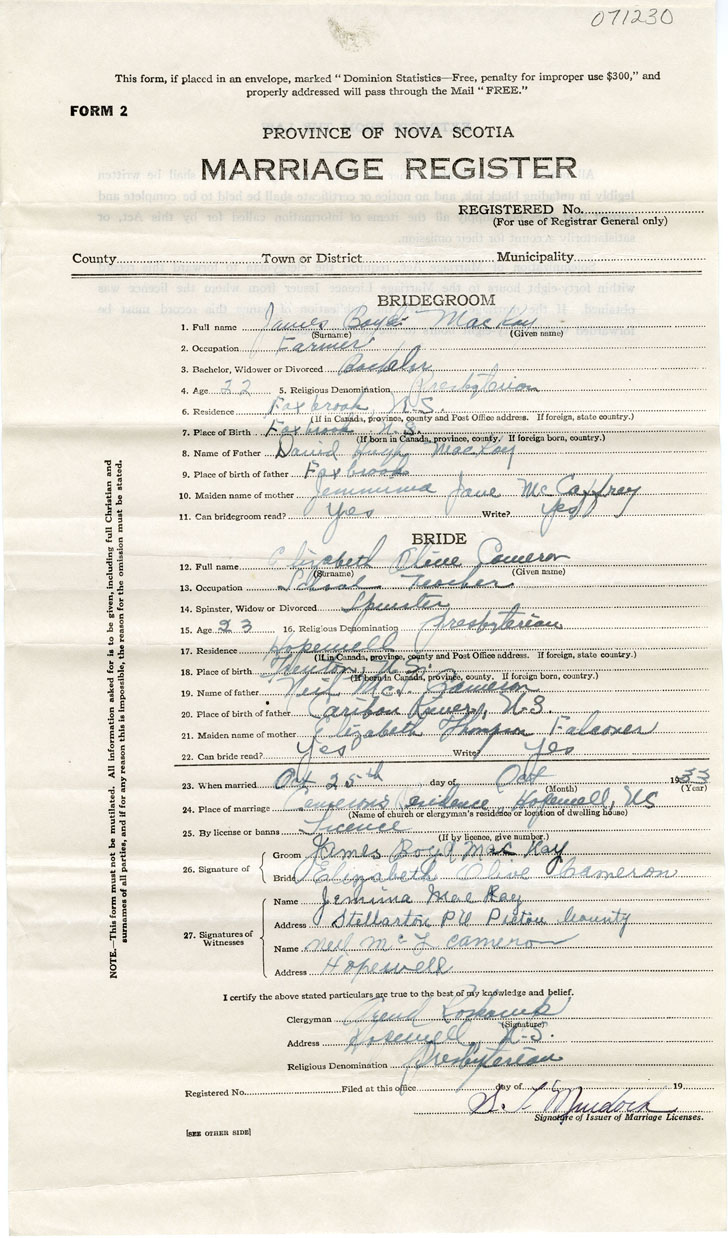 071230
This form, if placed in an envelope, marked "Dominion Statistics—Free, penalty for improper use $300," and
properly addressed will pass through the Mail "FREE."
FORM 2
PROVINCE OF NOVA SCOTIA
MARRIAGE REGISTER
REGISTERED No.
(For use of Registrar General only)
County Town or District Municipality
BRIDEGROOM
1. Full name James Boyd MacKay
(Surname) (Given name)
2. Occupation Farmer
3. Bachelor, Widower or Divorced Bachelor
4. Age 22 5. Religious Denomination Presbyterian
6. Residence Foxbrook, N.S.
(If in Canada, province, county and Post Office address. If foreign, state country.)
7. Place of Birth Foxbrook N.S.
(If born in Canada, province, county. If foreign born, country.)
8. Name of Father David Hugh MacKay
9. Place of birth of father Foxbrook
10. Maiden name of mother Jemmima Jane McCaffrey
11. Can bridegroom read? Yes Write? Yes
BRIDE
12. Full name Elizabeth Olive Cameron
(Surname) (Given name)
13. Occupation School Teacher
14. Spinster, Widow or Divorced Spinster
15. Age 23 16. Religious Denomination Presbyterian
17. Residence Hopewell
(If in Canada, province, county and Post Office address. If foreign, state country.)
18. Place of birth Trenton, N.S.
(If born in Canada, province, county. If foreign born, country.)
19. Name of father Neil Mc. Cameron
20. Place of birth of father Caribou River, N.S.
21. Maiden name of mother Elizabeth Thompson Falconer
22. Can bride read? Yes Write? Yes
23. When married Oct 25th day of Oct 1933
(Month) (Year)
24. Place of marriage Cameron's Residence Hopewell, NS
(Name of church or clergyman's residence or location of dwelling house)
25. By license or banns Licence
(If by licence, give number.)
26. Signature of
Groom James Boyd MacKay
Bride Elizabeth Olive Cameron
27. Signatures of Witnesses
Name Jemima MacKay
Address Stellarton Pictou County
Name Neil McL Cameron
Address Hopewell
I certify the above stated particulars are true to the best of my knowledge and belief.
Clergyman
(Signature)
Address Hopewell, N.S.
Religious Denomination Presbyterian
Registered No. Filed at this office day of 19
Murdoch
Signature of Issuer of Marriage Licenses.
[SEE OTHER SIDE]
NOTE.—This form must not be mutilated. All information asked for is to be given, including full Christian and
surnames of all parties, and if for any reason this is impossible, the reason for the omission must be stated.